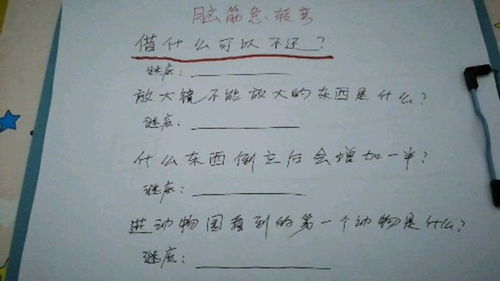 脑筋急转弯
借什么可以不还?
谜底:
放大镜不能放大的东西是什么?
谜底:
什么东西倒立后会增加一半?
谜底:
进动物园看到的第一个动物是什么?
谜底: